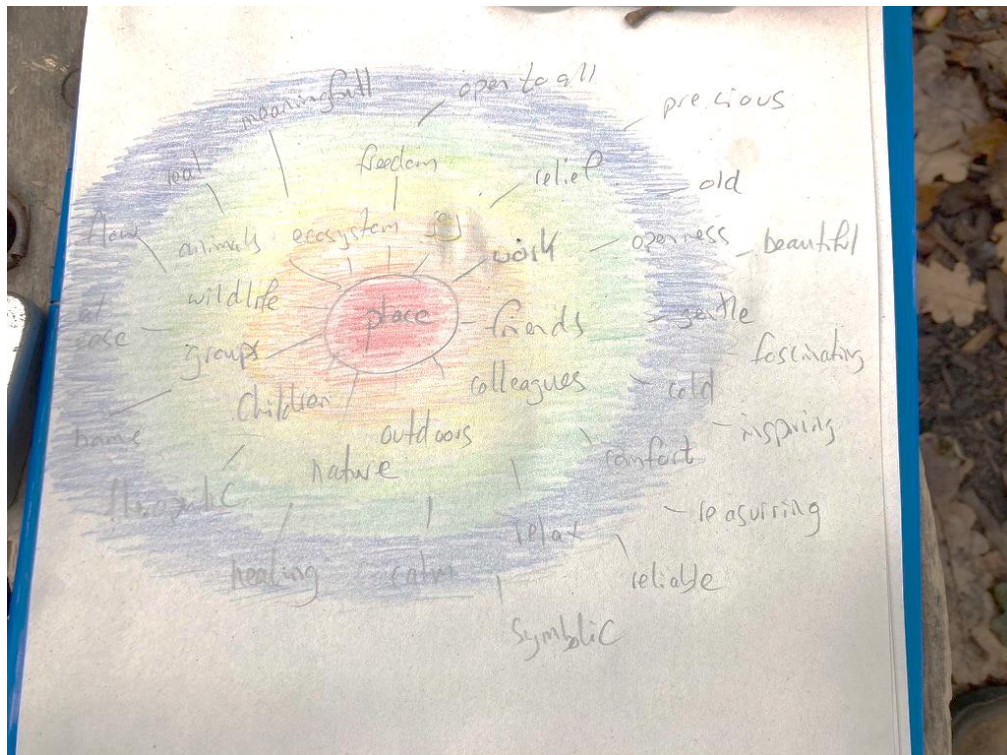 meaningfull
open to all
precious
real
freedom
relief
old
flow
animals
ecosystem
joy
work
openess
beautiful
at
ease
wildlife
place
friends
gentle
groups
fascinating
children
colleagues
cold
home
outdoors
inspiring
nature
comfort
healing
calm
relax
reasurring
reliable
symbolic